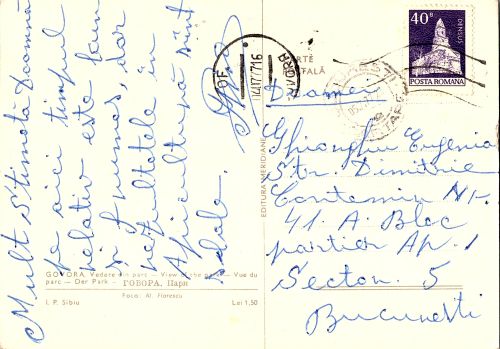 Mult Stimata Doamnă
pe aici timpul
relativ este frun
și frumos, dar
rezultatele în
Apicultură sînt
slabe.
GOVORA. Vedere din parc — View of the park — Vue du
parc — Der Park - ГОВОРА. Парк
Foto: Al. Florescu
I. P. Sibiu
Lei 1,50
EDITURA MERIDIANE
CARTE
POȘTALĂ
40B
DENSUȘ
POSTA ROMANA
GOVORA
Doamnei
Gheorghiu Eugenia
Str. Dimitrie
Cantemir Nr.
41. A. Bloc
partier Ap. 1
Sector. 5
București